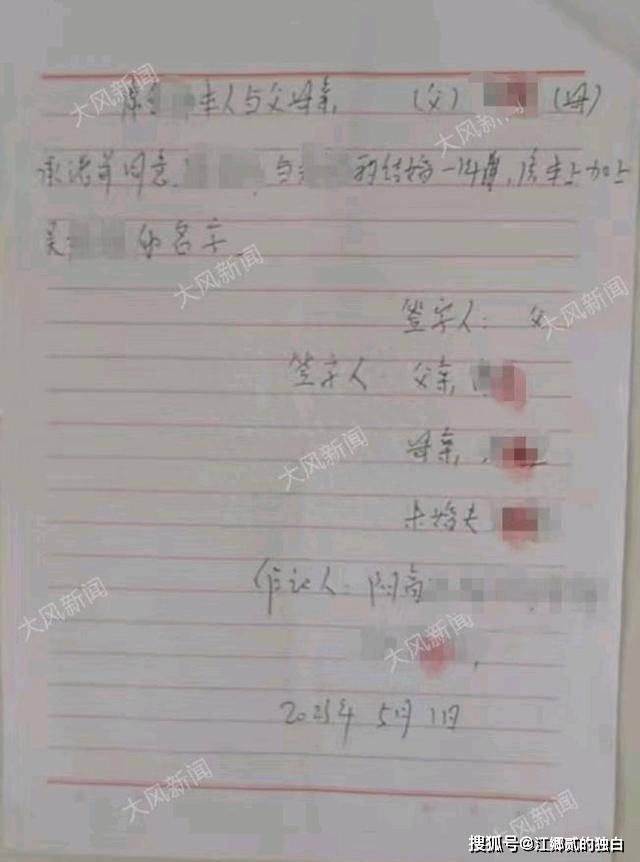 本人与父母亲 (父) (母)
承诺并同意 与 的结婚一周前,房本上加上
吴 的名字
签字人: 父
签字人: 父亲
母亲
未婚夫
作证人:
2025年 5月 1日
大风新闻
大风新闻
大风新闻
大风新闻
大风新闻
大风新闻
大风新闻
大风新闻
大风新闻
搜狐号@江鄉贰的独白